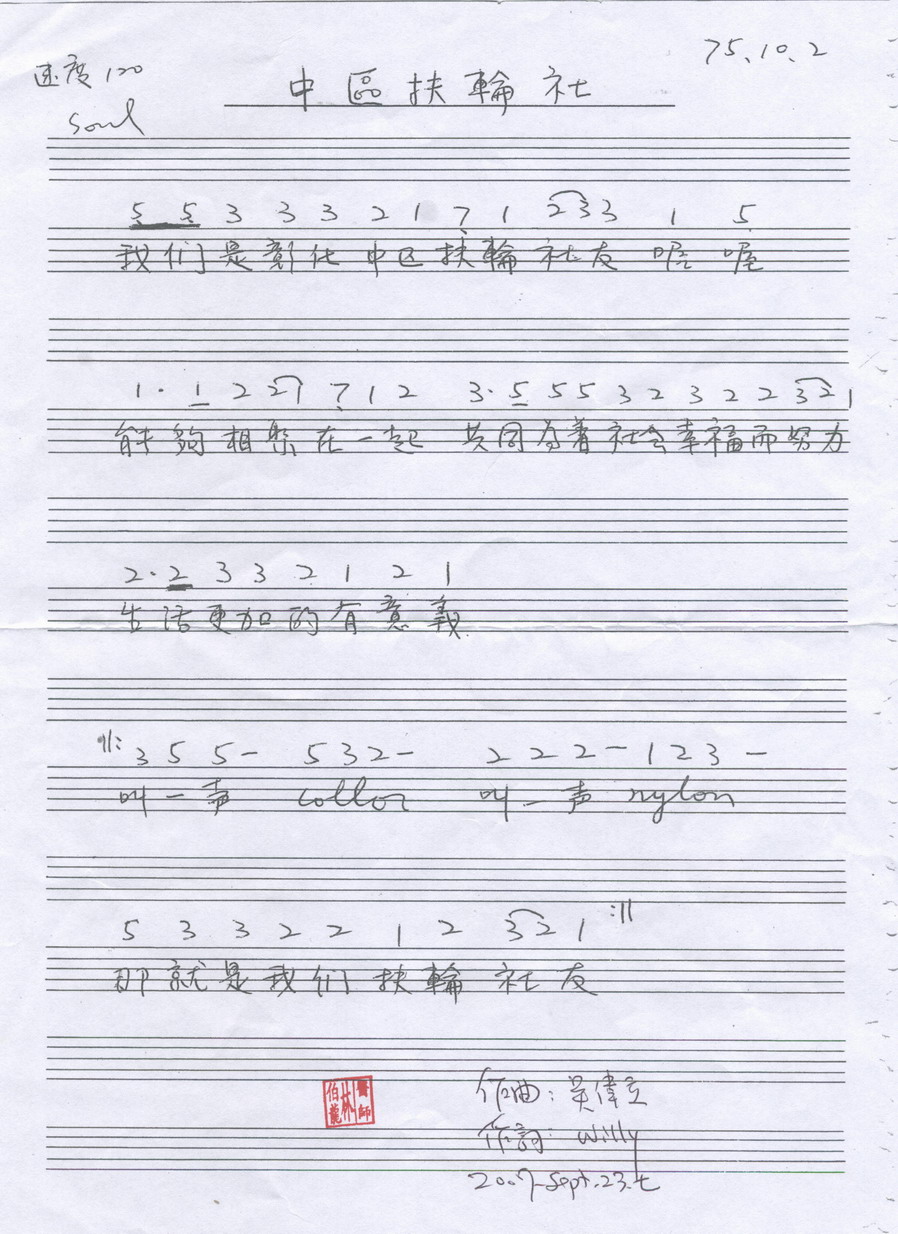 75.10.2
速度 120
中區扶輪社
Soul
5 5 3 3 3 2 1 7 1 2 3 3 1 5
我们是彰化 中区 扶輪 社友 喔 喔
1· 1 2 2 1 7 1 2 3· 5 5 5 3 2 3 2 2 3 2 1
能夠相聚在一起 共同為著社会幸福而努力
2· 2 3 3 2 1 2 1
生活更加的有意義
𝄆 3 5 5 - 5 3 2 - 2 2 2 - 1 2 3 -
叫一声 collor 叫一声 nylon
5 3 3 2 2 1 2 3 2 1 :||
那就是我们扶輪社友
作曲:吳偉立
醫師林伯龍
作詞:Willy
2007.Sept.23.七